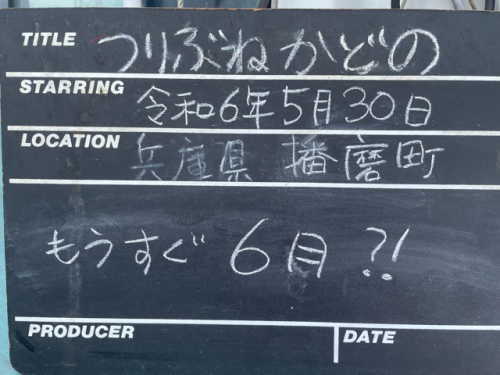 TITLE つりぶねかどの
STARRING 令和6年5月30日
LOCATION 兵庫県 播磨町
もうすぐ 6月 ?!
PRODUCER DATE